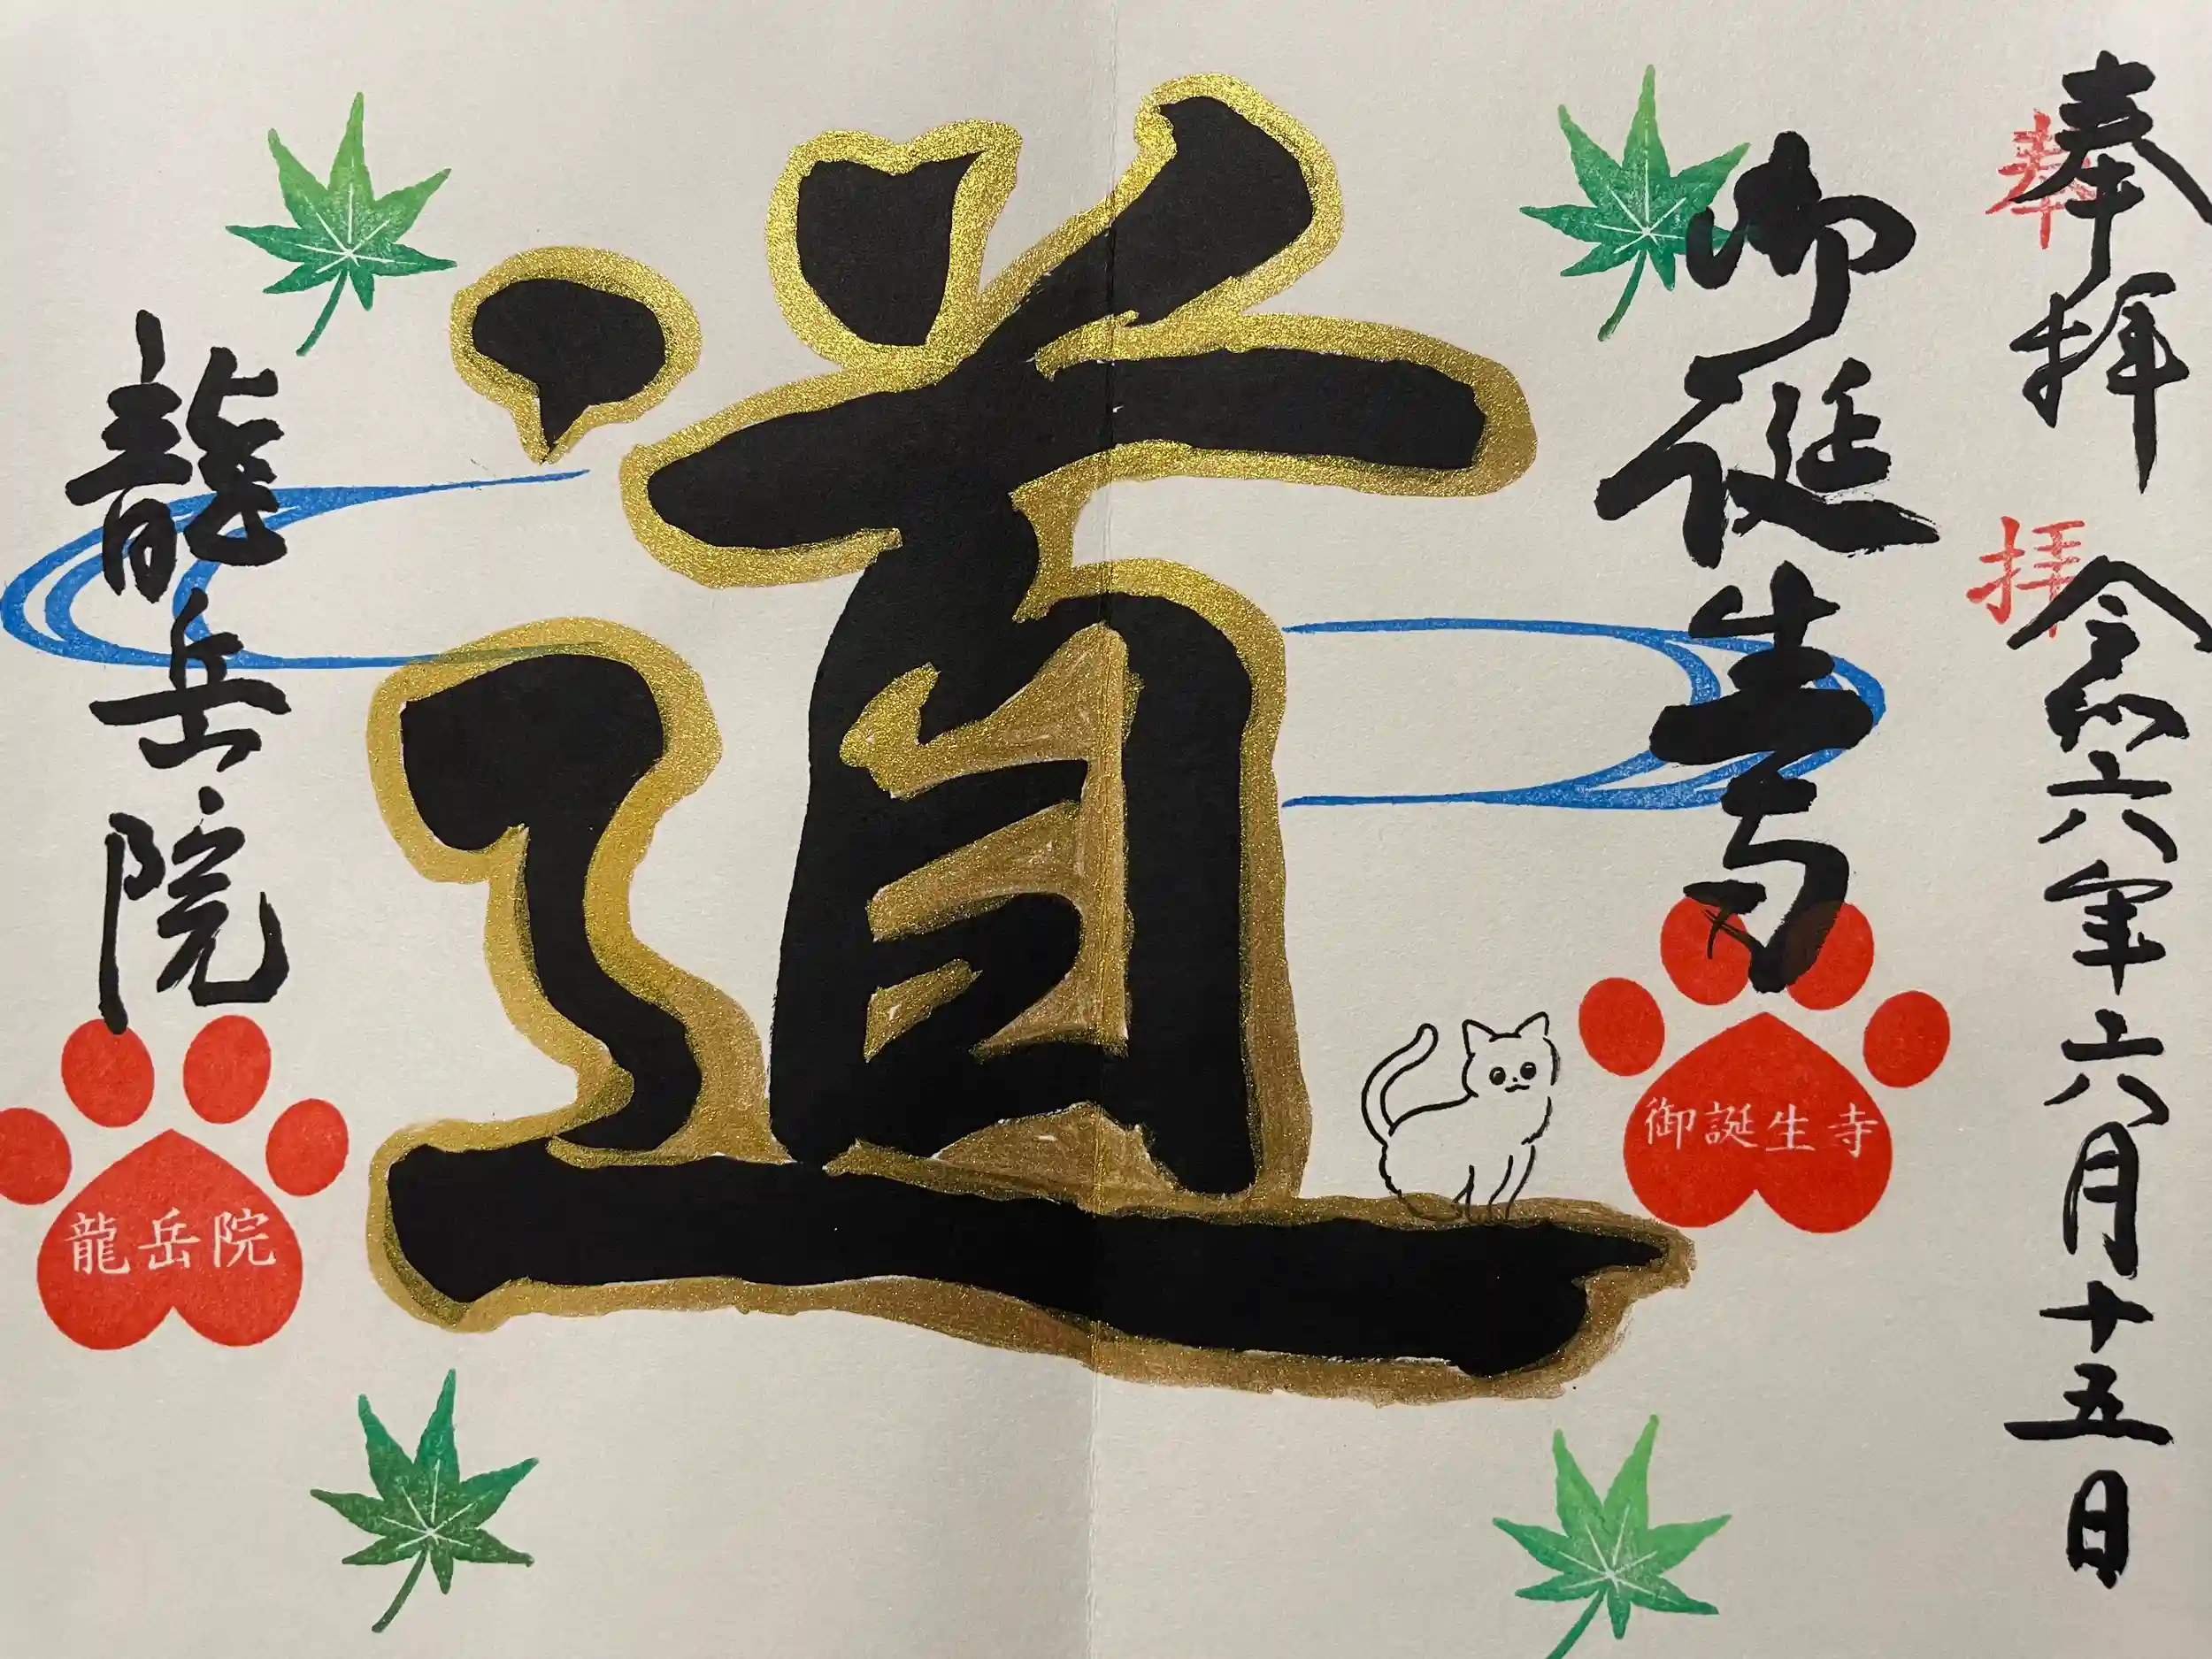 奉拝 令和六年六月十五日
奉拝
御誕生寺
御誕生寺
道
龍岳院
龍岳院